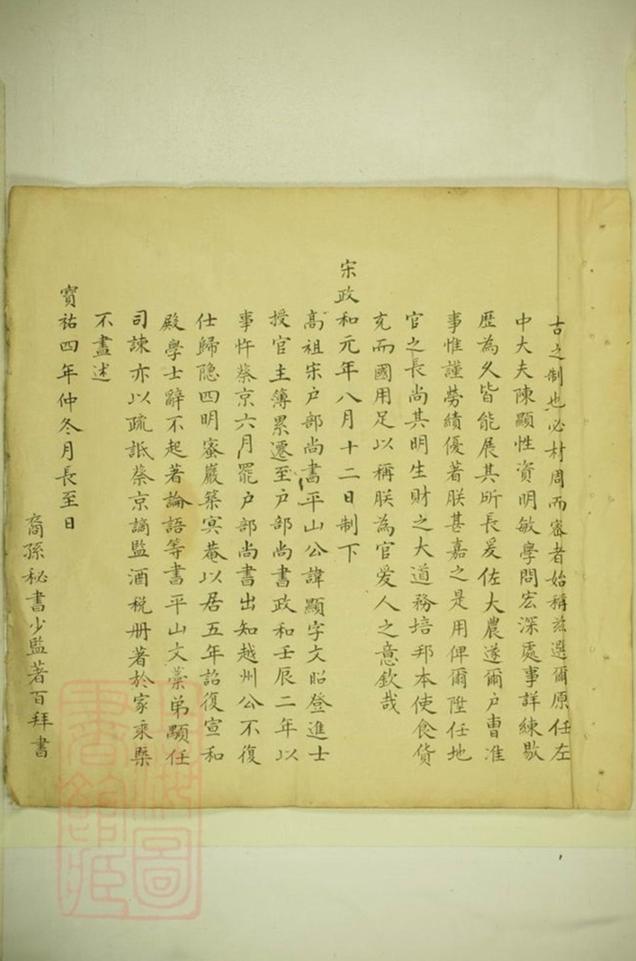 古之制也必材周而審者始稱茲選爾原任左
中大夫陳顯性資明敏學問宏深處事詳練敭
歷為久皆能展其所長爰佐大農遂爾戶曹准
事惟謹勞績優著朕甚嘉之是用俾爾陞任地
官之長尚其明生財之大道務培邦本使食貨
充而國用足以稱朕為官愛人之意欽哉
宋政和元年八月十二日制下
髙祖宋户部尚書平山公諱顯字文昭登進士
授官主簿累遷至户部尚書政和壬辰二年以
事忤蔡京六月罷户部尚書出知越州公不復
仕歸隐四明宻巖築㝠菴以居五年詔復宣和
殿學士辭不起著論語等書平山文藁弟顒任
司諫亦以疏詆蔡京謫監酒税册著於家乘槩
不盡述
寶祐四年仲冬月長至日
裔孫秘書少監著百拜書